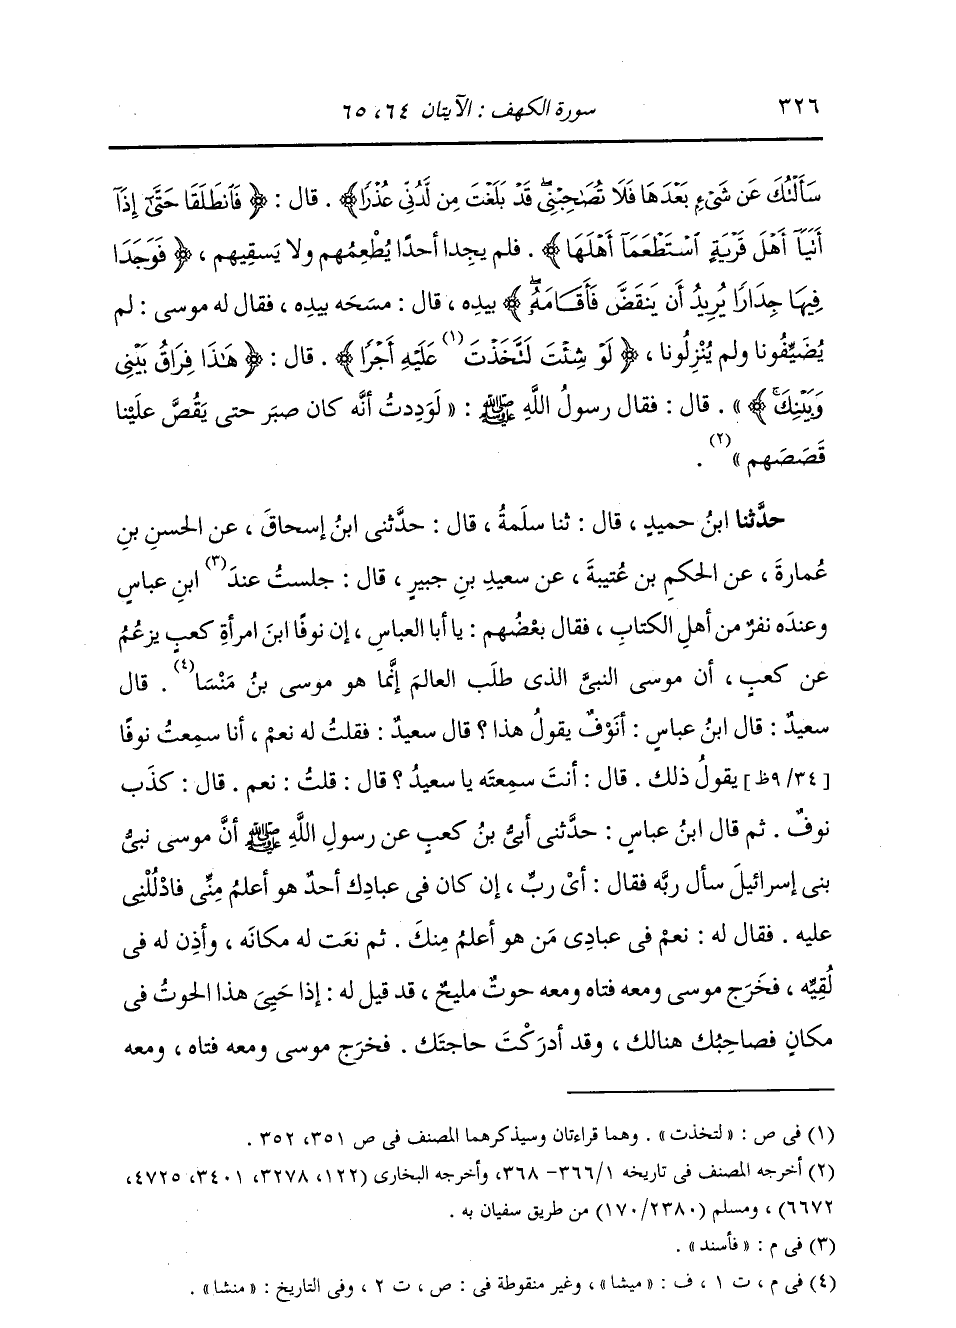 ٣٢٦ سورة الكهف : الآيتان ٦٤، ٦٥
سَأَلْتُكَ عَن شَىْءٍ بَعْدَهَا فَلَا تُصَٰحِبْنِىۖ قَدْ بَلَغْتَ مِن لَّدُنِّى عُذْرًا﴾ . قال : ﴿فَٱنطَلَقَا حَتَّىٰٓ إِذَآ
أَتَيَآ أَهْلَ قَرْيَةٍ ٱسْتَطْعَمَآ أَهْلَهَا﴾ . فلم يجِدا أحدًا يُطْعِمُهم ولا يَسقِيهم ، ﴿فَوَجَدَا
فِيهَا جِدَارًا يُرِيدُ أَن يَنقَضَّ فَأَقَامَهُۥۖ﴾ بيدِه ، قال : مسَحَه بيدِه ، فقال له موسى : لم
يُضَيِّفُونا ولم يُنْزِلُونا ، ﴿لَوْ شِئْتَ لَتَّخَذْتَ (١) عَلَيْهِ أَجْرًا﴾ . قال : ﴿هَٰذَا فِرَاقُ بَيْنِى
وَبَيْنِكَۚ﴾ » . قال : فقال رسولُ اللَّهِ ﷺ : « لَوَدِدتُ أنَّه كان صبَر حتى يَقُصَّ علَيْنا
قَصَصَهم » (٢) .
حدَّثنا ابنُ حميدٍ ، قال : ثنا سلَمةُ ، قال : حدَّثنى ابنُ إسحاقَ ، عن الحسنِ بنِ
عُمارةَ ، عن الحكمِ بن عُتيبةَ ، عن سعيدِ بنِ جبيرٍ ، قال : جلستُ عندَ (٣) ابنِ عباسٍ
وعندَه نفرٌ من أهلِ الكتابِ ، فقال بعْضُهم : يا أبا العباسِ ، إن نوفًا ابنَ امرأةِ كعبٍ يزعُمُ
عن كعبٍ ، أن موسى النبىَّ الذى طلَب العالمَ إنَّما هو موسى بنُ مَنْسَا (٤) . قال
سعيدٌ : قال ابنُ عباسٍ : أنَوْفٌ يقولُ هذا ؟ قال سعيدٌ : فقلتُ له نعمْ ، أنا سمِعتُ نوفًا
[٩/٣٤ظ] يقولُ ذلك . قال : أنتَ سمِعتَه يا سعيدُ ؟ قال : قلتُ : نعم . قال : كذَب
نوفٌ . ثم قال ابنُ عباسٍ : حدَّثنى أبىُّ بنُ كعبٍ عن رسولِ اللَّهِ ﷺ أنَّ موسى نبىُّ
بنى إسرائيلَ سأل ربَّه فقال : أىْ ربِّ ، إن كان فى عبادِك أحدٌ هو أعلمُ مِنِّى فادْلُلْنِى
عليه . فقال له : نعمْ فى عبادِى مَن هو أعلمُ مِنكَ . ثم نعَت له مكانَه ، وأذِن له فى
لُقِيِّه ، فخَرَج موسى ومعه فتاه ومعه حوتٌ مليحٌ ، قد قيل له : إذا حَيِىَ هذا الحوتُ فى
مكانٍ فصاحِبُك هنالك ، وقد أدرَكْتَ حاجتَك . فخرَج موسى ومعه فتاه ، ومعه
(١) فى ص : « لتخذت » . وهما قراءتان وسيذكرهما المصنف فى ص ٣٥١، ٣٥٢ .
(٢) أخرجه المصنف فى تاريخه ٣٦٦/١- ٣٦٨، وأخرجه البخارى (١٢٢، ٣٢٧٨، ٣٤٠١، ٤٧٢٥،
٦٦٧٢) ، ومسلم (١٧٠/٢٣٨٠) من طريق سفيان به .
(٣) فى م : « فأسند » .
(٤) فى م ، ت ١ ، ف : « ميشا » ، وغير منقوطة فى : ص ، ت ٢ ، وفى التاريخ : « منشا » .